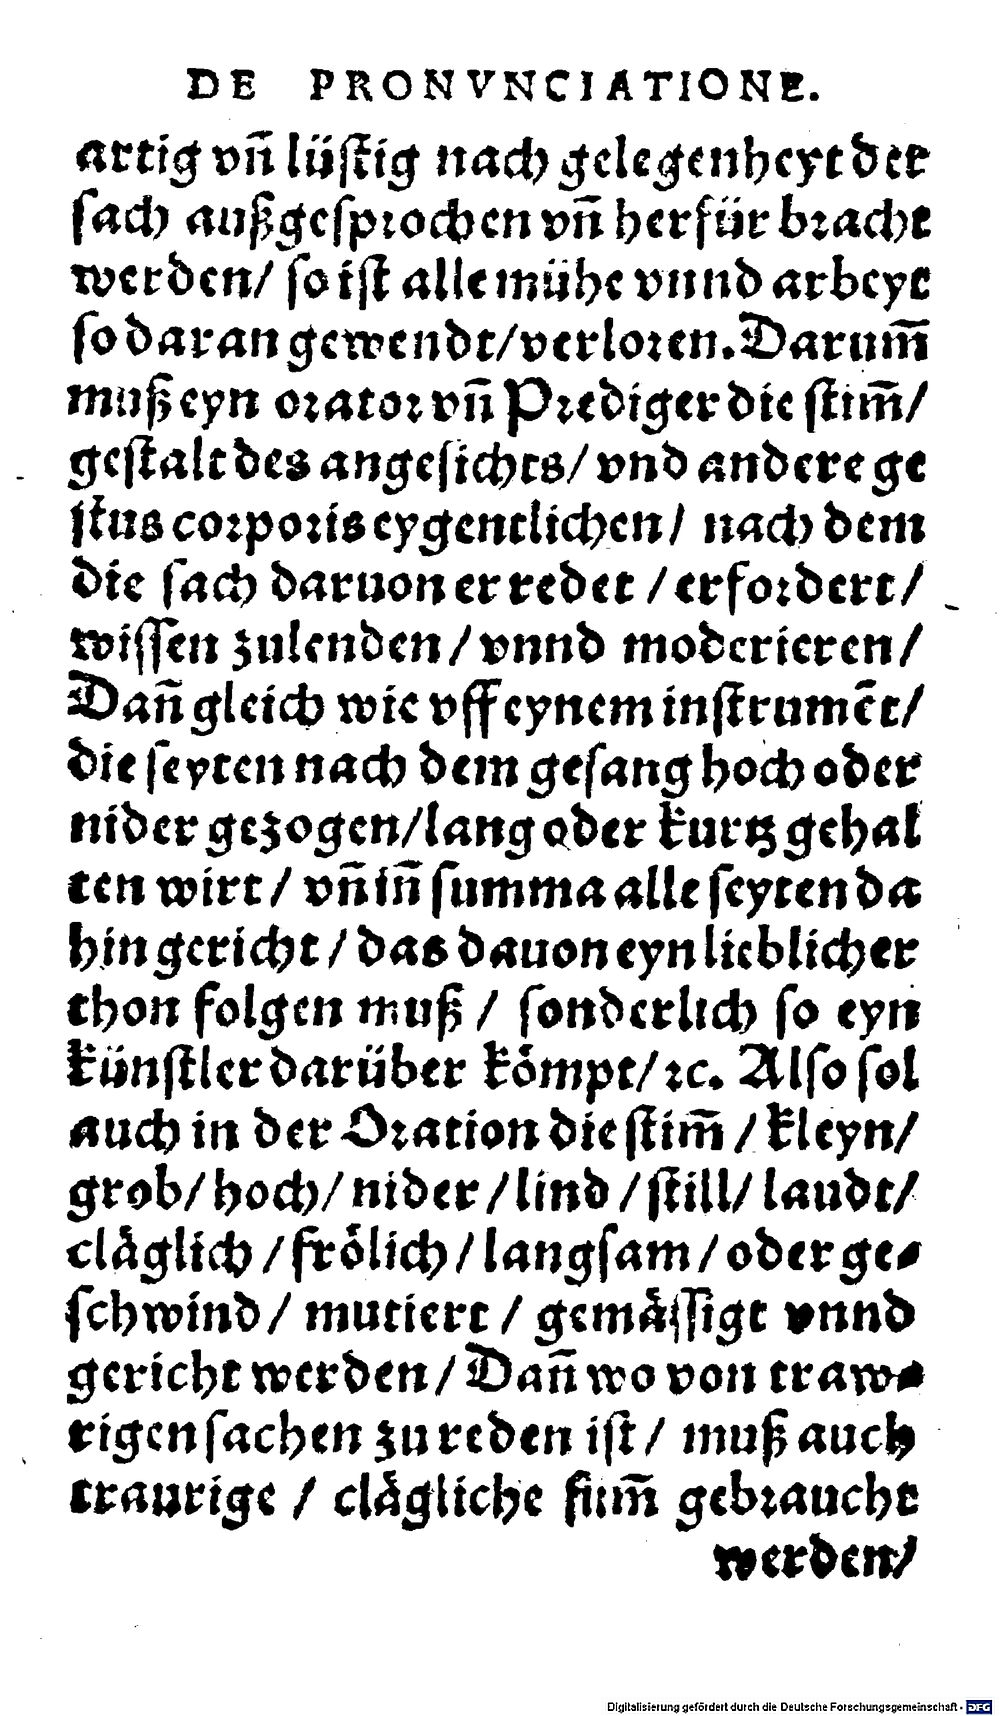 DE PRONVNCIATIONE.
artig vñ lüſtig nach gelegenheyt der
ſach außgeſprochen vñ herfür bracht
werden/ ſo iſt alle mühe vnnd arbeyt
ſo daran gewendt/verloren. Darum̄
muß eyn orator vñ Prediger die ſtim̄/
geſtalt des angeſichts/ vnd andere ge
ſtus corporis eygentlichen/ nach dem
die ſach daruon er redet / erfordert/
wiſſen zulenden / vnnd moderieren /
Dañ gleich wie vff eynem inſtrumēt/
die ſeyten nach dem geſang hoch oder
nider gezogen/lang oder kurtz gehal
ten wirt / vñ iñ ſumma alle ſeyten da
hin gericht / das dauon eyn lieblicher
thon folgen muß / ſonderlich ſo eyn
künſtler darüber kömpt/ ꝛc. Alſo ſol
auch in der Oration die ſtim̄ / kleyn/
grob/ hoch/ nider / lind / ſtill/ laudt/
clåglich / frölich / langſam / oder ge⸗
ſchwind / mutiert / gemåſſigt vnnd
gericht werden / Dañ wo von traw⸗
rigen ſachen zu reden iſt / muß auch
traurige / clågliche ſtim̄ gebraucht
werden/
Digitalisierung gefördert durch die Deutsche Forschungsgemeinschaft - DFG